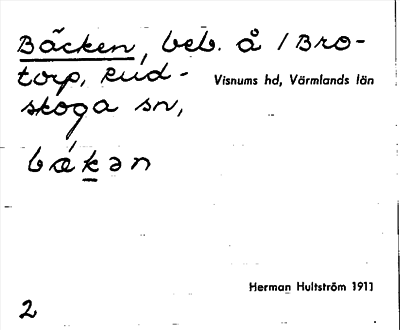 Bäcken, beb. å /Bro-
torp, Rud-
skoga sn,
Visnums hd, Värmlands län
bǽk̲ən
Herman Hultström 1911
2